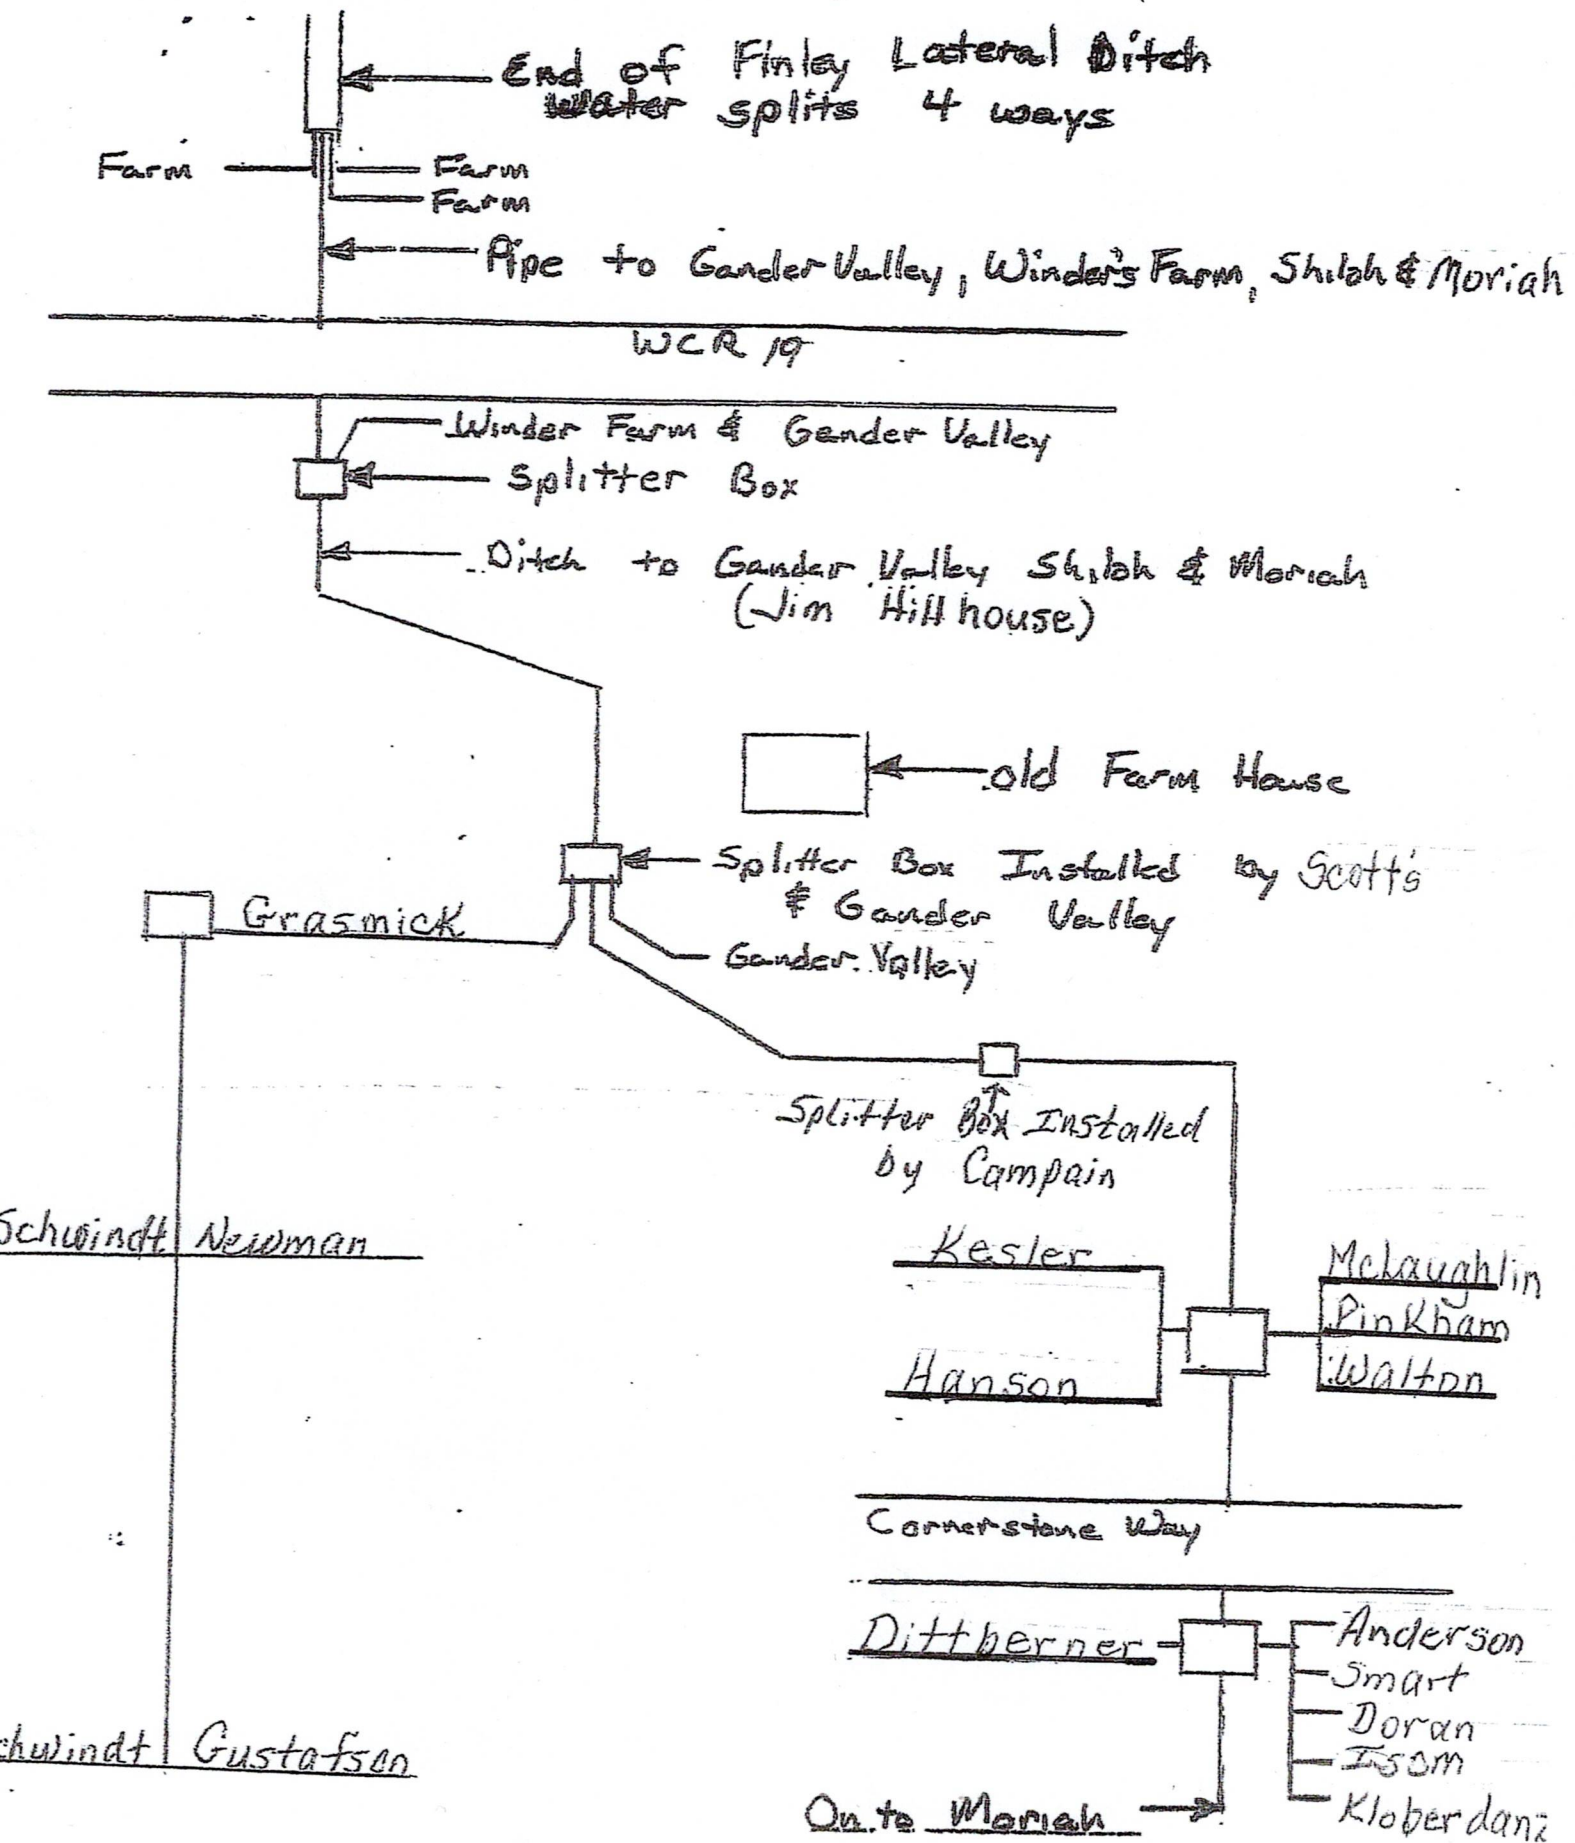 End of Finley Lateral Ditch
Water splits 4 ways
Farm
Farm
Farm
Pipe to Gander Valley, Winder's Farm, Shiloh & Moriah
WCR 19
Winder Farm & Gander Valley
Splitter Box
Ditch to Gander Valley Shiloh & Moriah
(Jim Hillhouse)
old Farm House
Splitter Box Installed by Scott's
& Gander Valley
Grasmick
Gander Valley
Splitter Box Installed
by Campain
Schwindt Newman
Kesler
McLaughlin
Pinkham
Hanson
Walton
Cornerstone Way
Dittberner
Anderson
Smart
Doran
Isom
Kloberdanz
chwindt Gustafson
On to Moriah